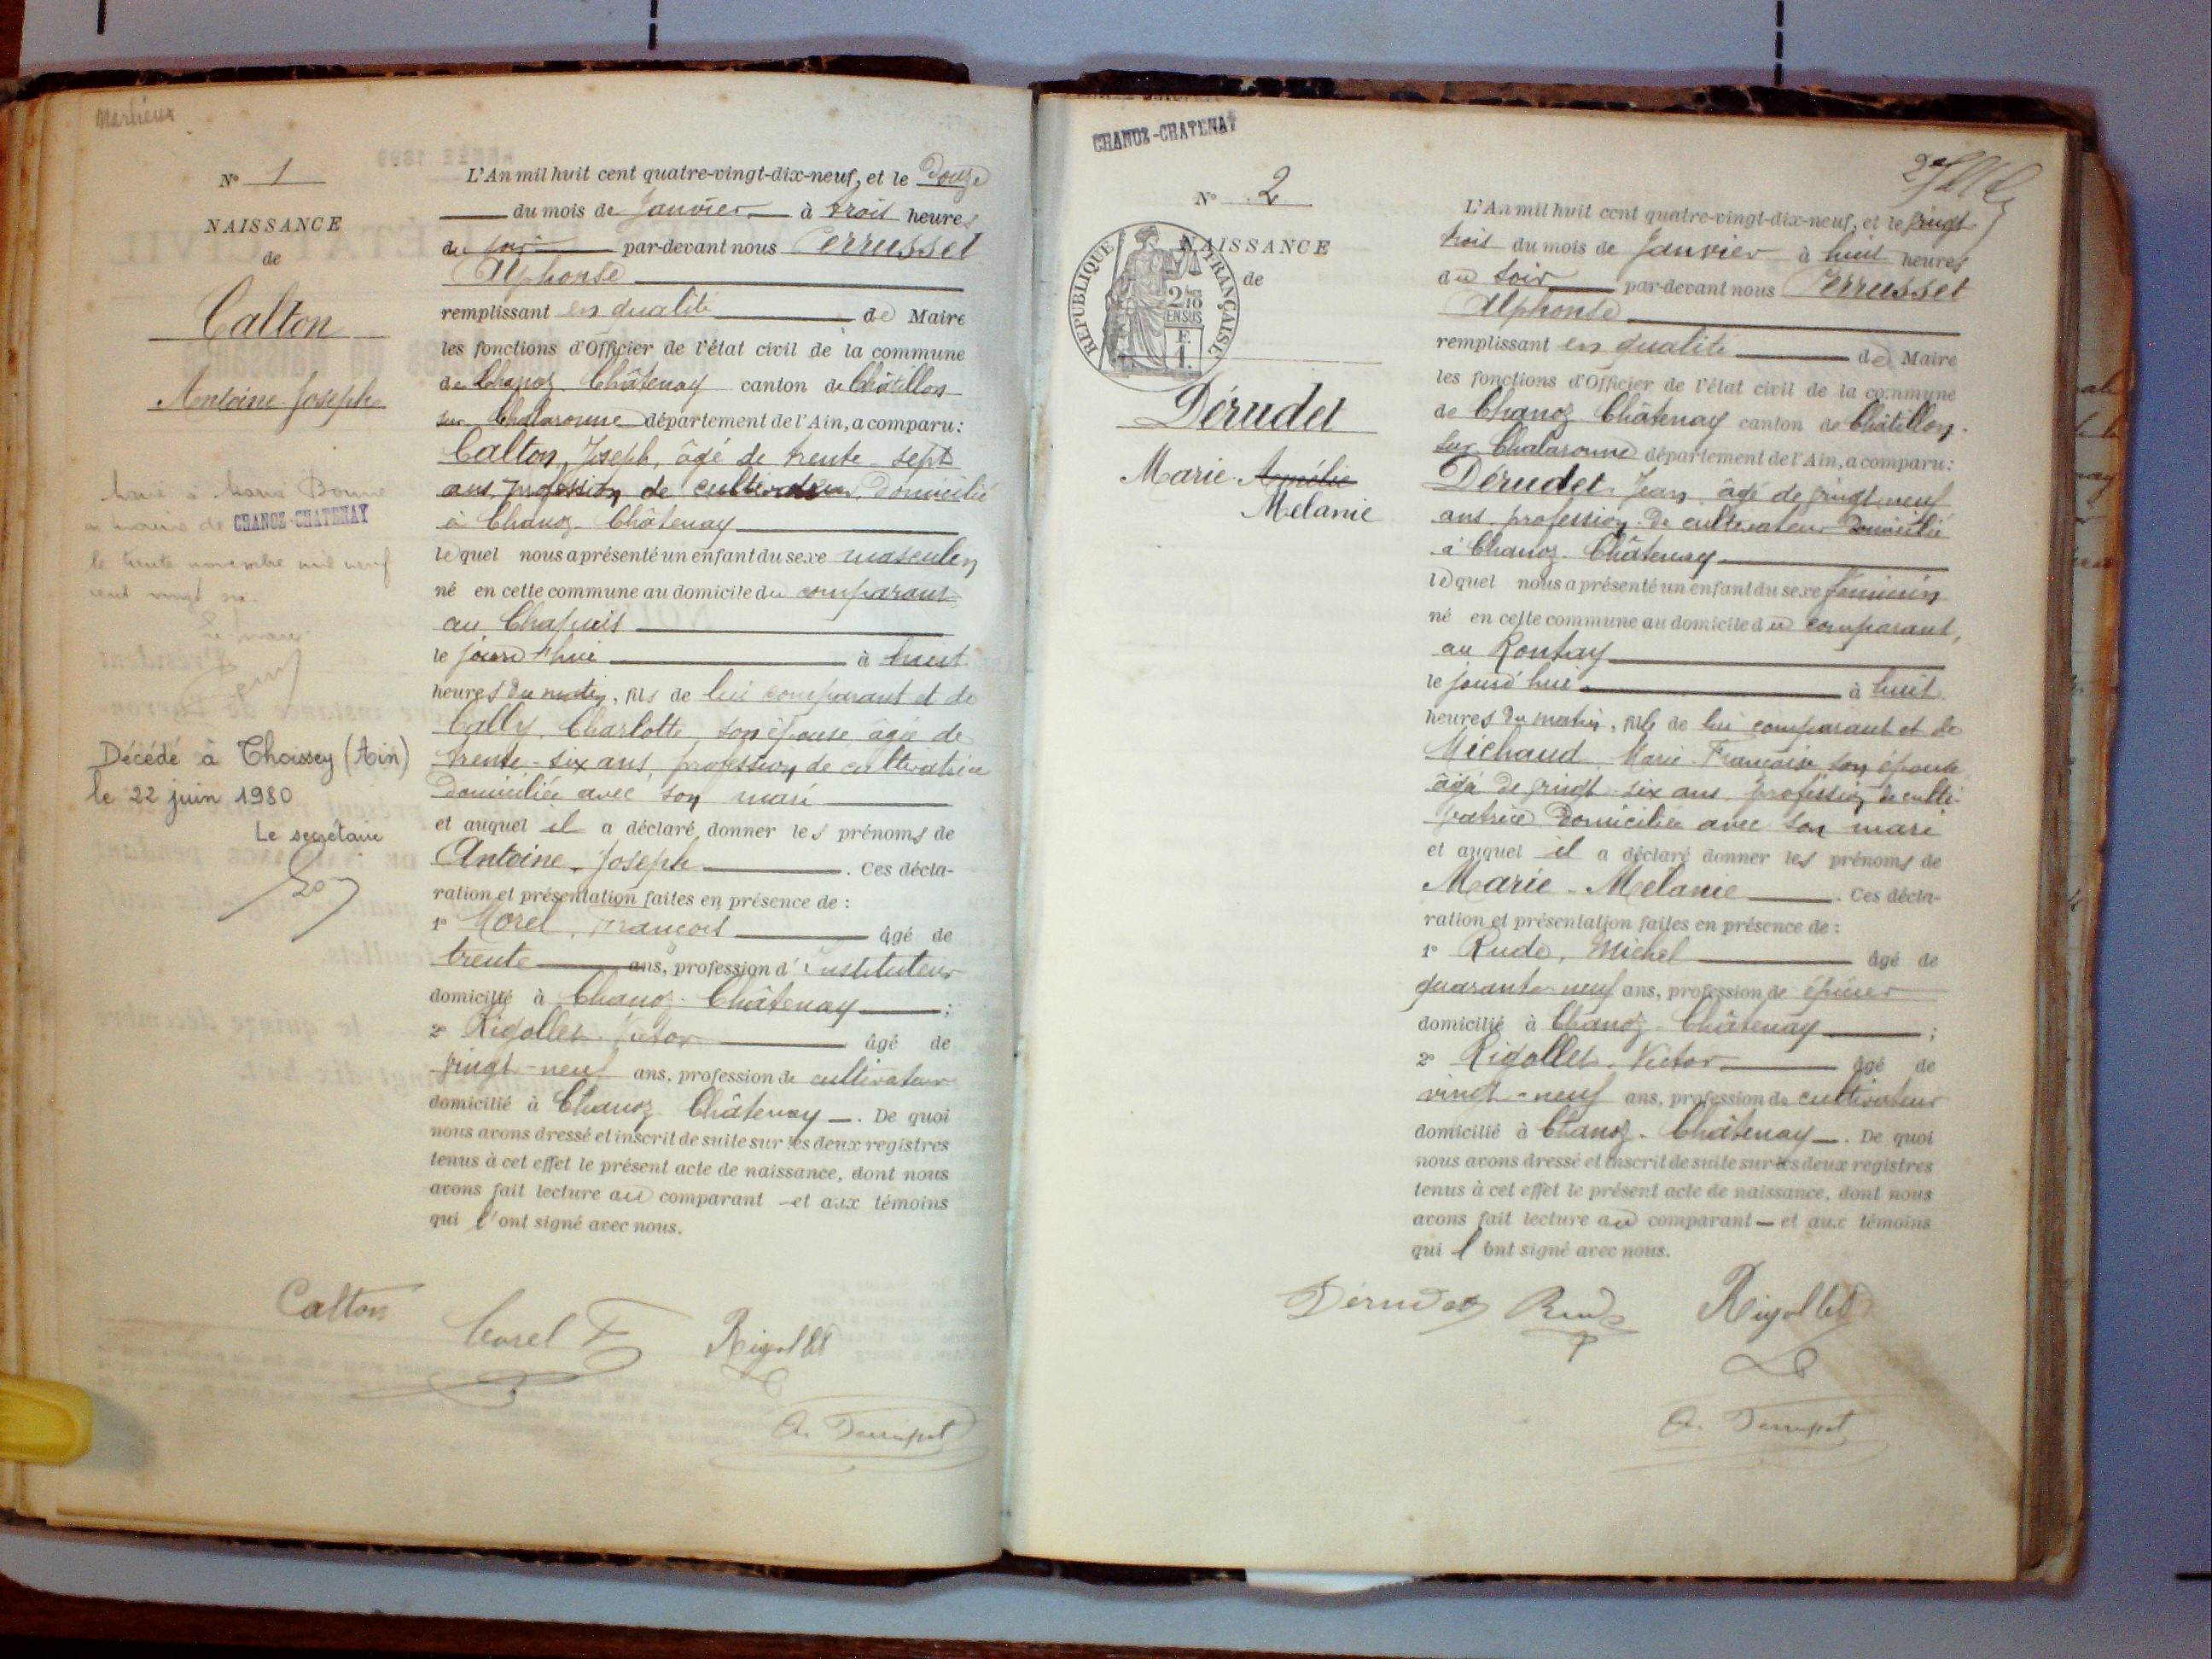 Marlieux
N° 1
NAISSANCE
de
Calton
Antoine Joseph
Marié à Marie
en mairie de CHANOZ-CHATENAY
le trente novembre mil neuf
cent vingt
Le maire
Décédé à Thoissey (Ain)
le 22 juin 1980
Le secrétaire
L'An mil huit cent quatre-vingt-dix-neuf, et le Douze
du mois de Janvier à trois heures
du soir par-devant nous Perrusset
Alphonse
remplissant en qualité de Maire
les fonctions d'Officier de l'état civil de la commune
de Chanoz-Châtenay canton de Châtillon
sur Chalaronne département de l'Ain, a comparu:
Calton, Joseph, âgé de trente-sept
ans, profession de cultivateur, domicilié
à Chanoz-Châtenay
lequel nous a présenté un enfant du sexe masculin
né en cette commune au domicile du comparant
au Chapuis
le jourd'hui à huit
heures du matin, fils de lui comparant et de
Cally, Charlotte, son épouse âgée de
trente-six ans, profession de cultivatrice
domiciliée avec son mari
et auquel il a déclaré donner les prénoms de
Antoine-Joseph. Ces décla-
ration et présentation faites en présence de :
1° Morel, François âgé de
trente ans, profession d'instituteur
domicilié à Chanoz-Châtenay ;
2° Rigollet, Victor âgé de
vingt-neuf ans, profession de cultivateur
domicilié à Chanoz Châtenay. De quoi
nous avons dressé et inscrit de suite sur les deux registres
tenus à cet effet le présent acte de naissance, dont nous
avons fait lecture au comparant et aux témoins
qui l'ont signé avec nous.
Calton
Morel F
Rigollet
A. Perrusset
CHANOZ-CHATENAY
N° 2
NAISSANCE
de
RÉPUBLIQUE FRANÇAISE
2/10
EN SUS
Dérudet
Marie Amélie
Mélanie
L'An mil huit cent quatre-vingt-dix-neuf, et le vingt
trois du mois de Janvier à huit heures
du soir par-devant nous Perrusset
Alphonse
remplissant en qualité de Maire
les fonctions d'Officier de l'état civil de la commune
de Chanoz Châtenay canton de Châtillon-
sur Chalaronne département de l'Ain, a comparu:
Dérudet Jean, âgé de vingt neuf
ans, profession de cultivateur domicilié
à Chanoz-Châtenay
lequel nous a présenté un enfant du sexe féminin
né en cette commune au domicile du comparant,
au Rontay
le jourd'hui à huit
heures du matin, fille de lui comparant et de
Michaud, Marie Françoise son épouse
âgée de vingt-six ans, profession de culti-
vatrice domiciliée avec son mari
et auquel il a déclaré donner les prénoms de
Marie-Mélanie. Ces décla-
ration et présentation faites en présence de :
1° Rude, Michel âgé de
quarante-neuf ans, profession de épicier
domicilié à Chanoz-Châtenay ;
2° Rigollet, Victor âgé de
vingt-neuf ans, profession de cultivateur
domicilié à Chanoz-Châtenay. De quoi
nous avons dressé et inscrit de suite sur les deux registres
tenus à cet effet le présent acte de naissance, dont nous
avons fait lecture au comparant et aux témoins
qui l'ont signé avec nous.
Dérudet
Rude
Rigollet
A. Perrusset